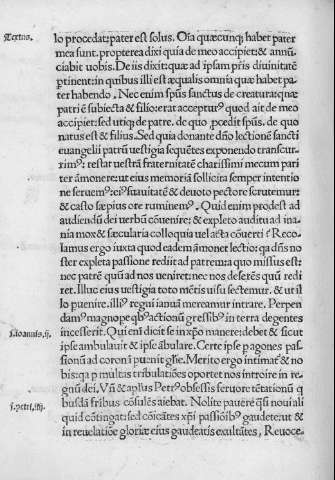 Textus.
lo procedat: pater est solus. Oĩa quæcunq; habet pater
mea sunt. propterea dixi quia de meo accipiet: & annũ
ciabit uobis. De iis dixit: quæ ad ipsam pris diuinitatẽ
ptinent: in quibus illi est æqualis omnia quæ habet pa-
ter habendo. Nec enim spũs sanctus de creatura: quæ
patri ẽ subiecta & filio: erat acceptur⁹ quod ait de meo
accipiet: sed utiq; de patre. de quo pcedit spũs. de quo
natus est & filius. Sed quia donante dño lectionẽ sancti
euangelii patrũ uestigia sequẽtes exponendo transcur-
rim⁹: restat uestrã fraternitatẽ charissimi mecum pari
ter ãmonere: ut eius memoria sollicita semper intentio
ne seruem⁹: ei⁹ suauitatẽ & deuoto pectore scrutemur:
& casto sæpius ore ruminem⁹. Quid enim prodest ad
audiendũ dei uerbũ cõuenire: & expleto auditu ad ina-
nia mox & sæcularia colloquia uel acta cõuerti? Reco-
lamus ergo iuxta quod eadem ãmonet lectio: qa dñs no
ster expleta passione rediit ad patrem: a quo missus est:
nec patrẽ quũ ad nos ueniret: nec nos deserẽs quũ redi
ret. Illuc eius uestigia toto mẽtis uisu sectemur. & ut il
lo puenire. illi⁹ regni ianuã mereamur intrare. Perpen
dam⁹ magnope qb⁹ actionũ gressib⁹ in terra degentes
j. ioannis. ij.
incesserit. Qui em̃ dicit se in xpo manere: debet & sicut
ipse ambulauit & ipse ãbulare. Certe ipse p agones pas-
sionũ ad coronã puenit gliæ. Merito ergo intimat⁹ & no
bis: qa p multas tribulatiões oportet nos introire in re-
gnũ dei. Vñ & aplus Petr⁹ obsessis feruore tẽtationũ q
j. petri. iiij.
busdã fribus cõsulẽs aiebat. Nolite pauere qsi noui ali
quid cõtingat: sed cõicãtes xpi passiõib⁹ gaudete: ut &
in reuelatiõe gloriæ eius gaudeatis exultãtes, Reuoce-